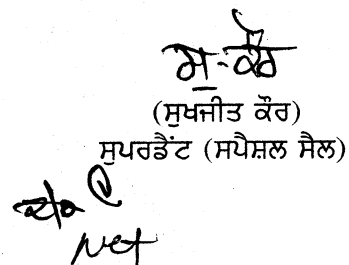 ਸੁ-ਕੌਰ
(ਸੁਖਜੀਤ ਕੌਰ)
ਸੁਪਰਡੈਂਟ (ਸਪੈਸ਼ਲ ਸੈਲ)
Net